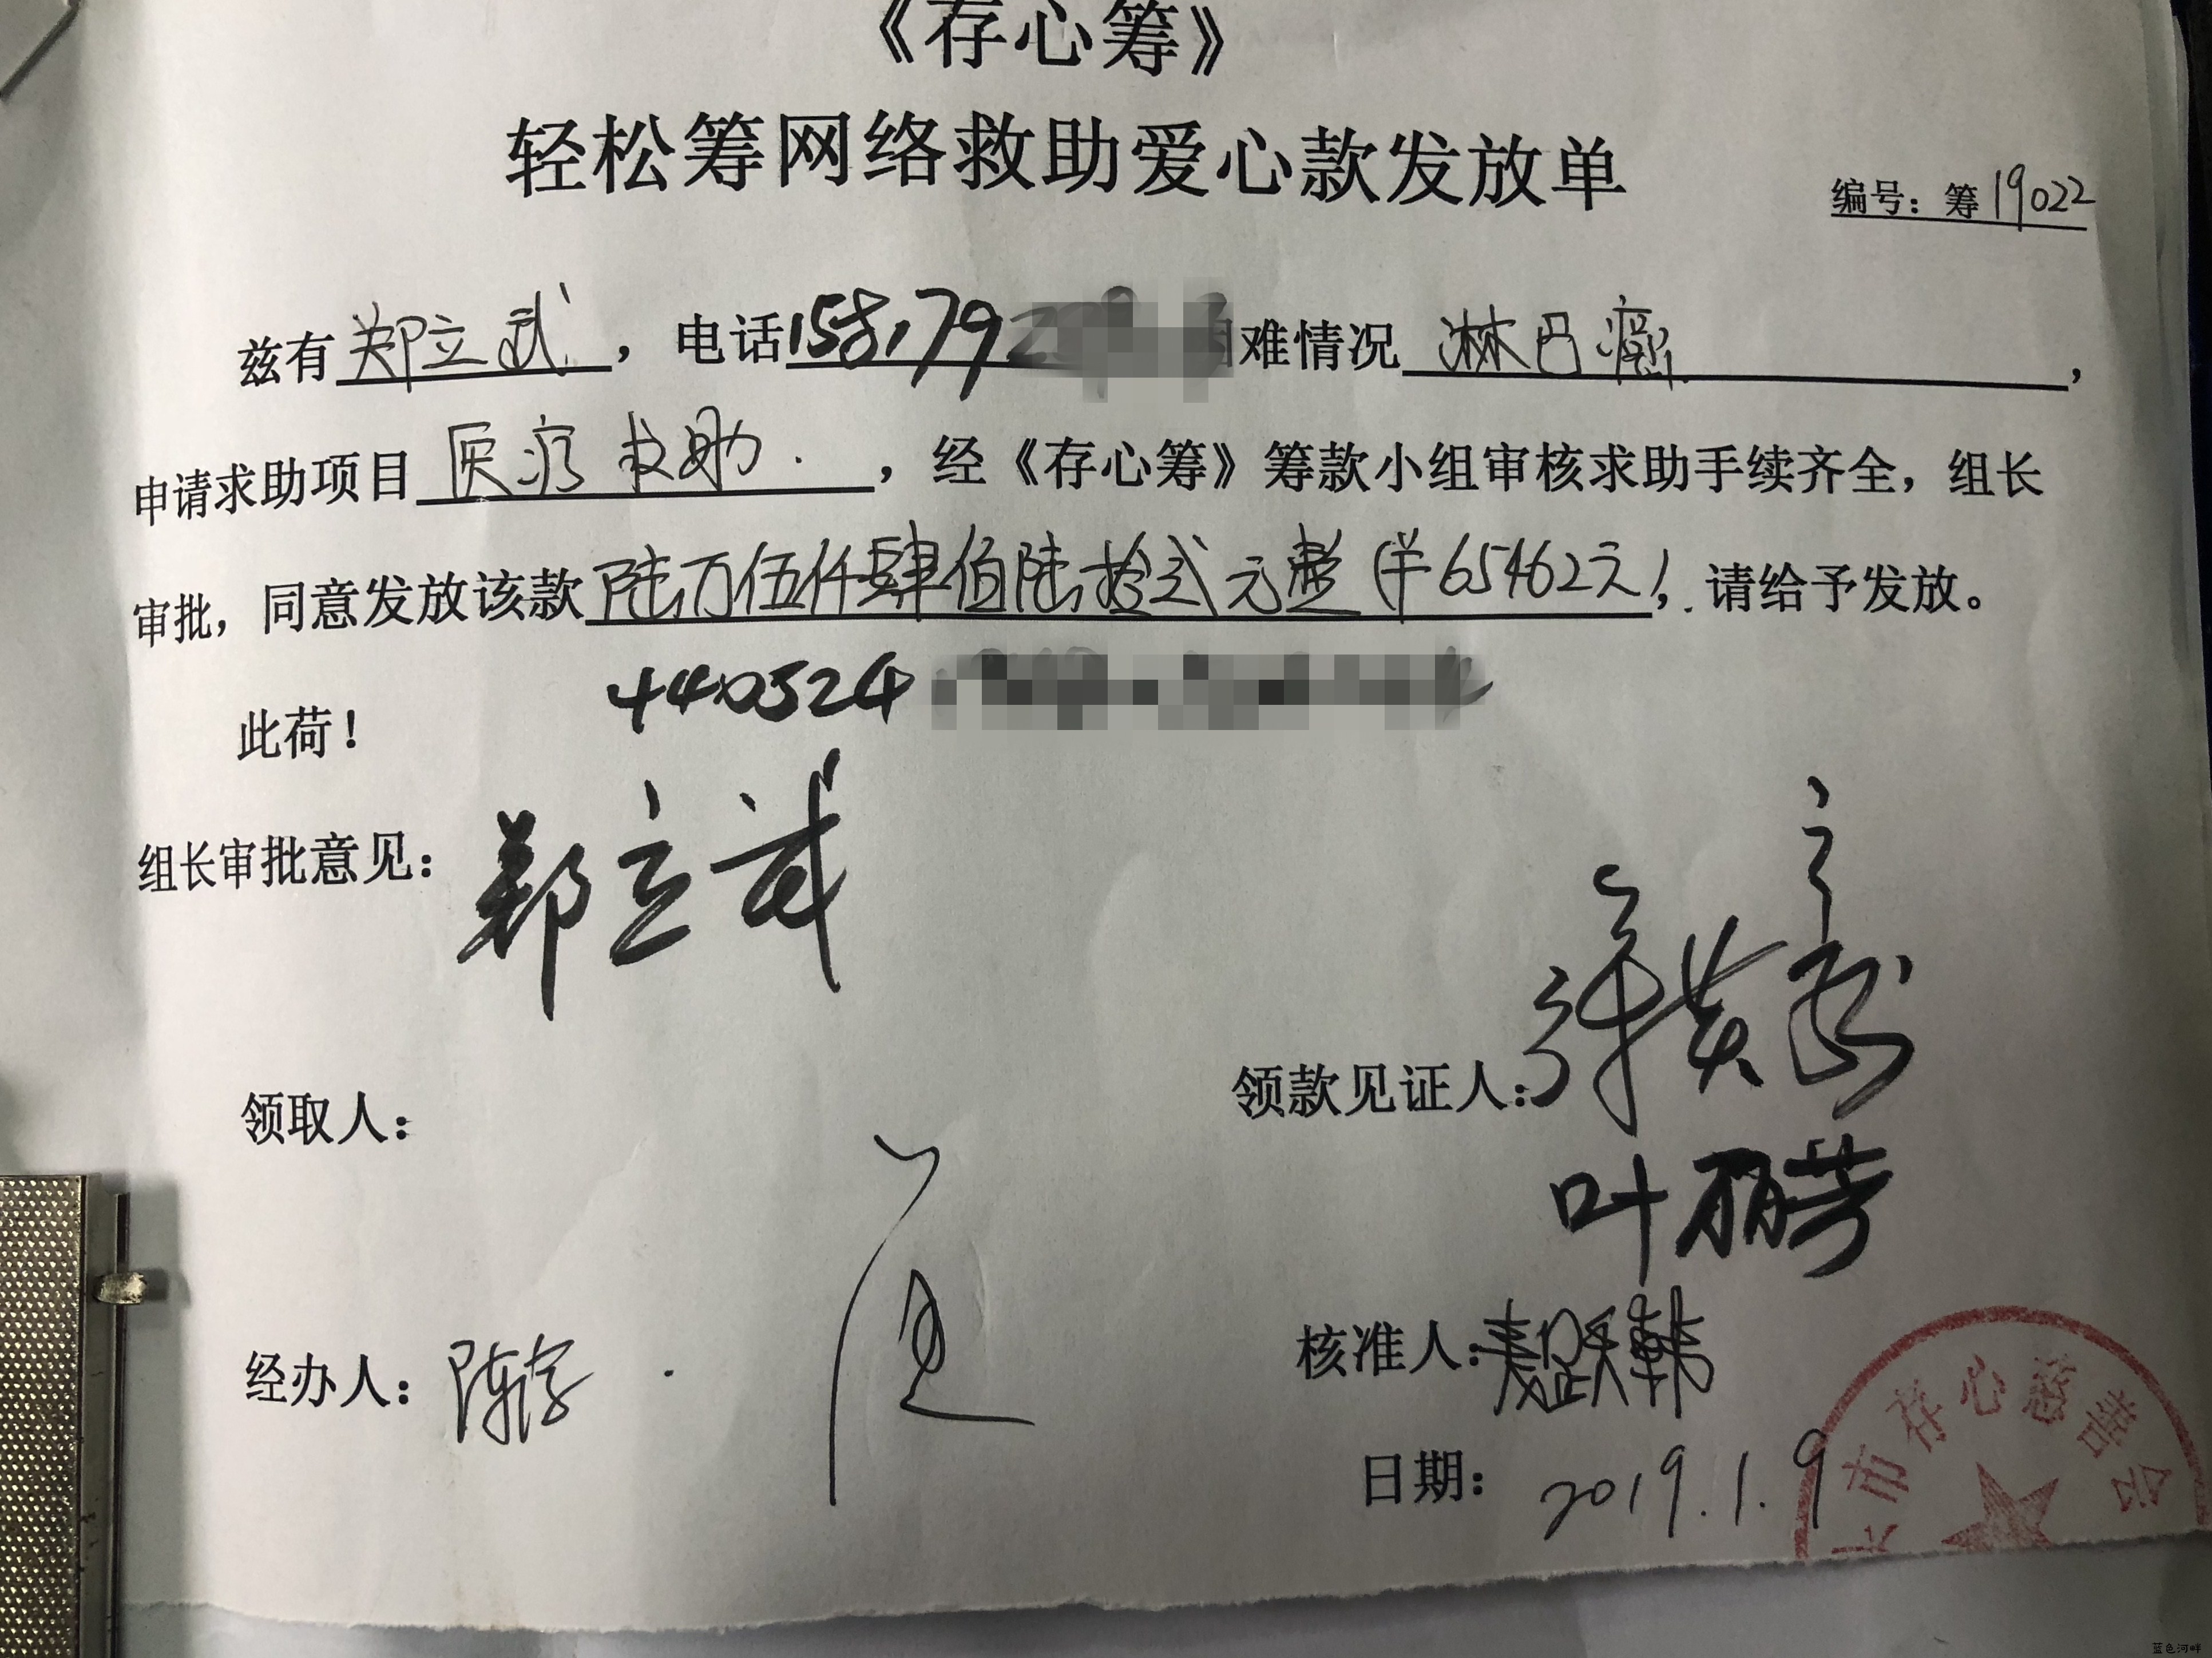 《存心筹》
轻松筹网络救助爱心款发放单
编号：筹19022
兹有郑立武，电话158179 难情况 淋巴瘤，
申请求助项目医疗救助.，经《存心筹》筹款小组审核求助手续齐全，组长
审批，同意发放该款陆万伍仟肆佰陆拾贰元整（￥65462元），请给予发放。
440524
此荷！
组长审批意见：郑立武
领取人：
领款见证人：
叶丽芳
经办人：陈
核准人：
日期：2019.1.9
市存心慈善会
蓝色河畔